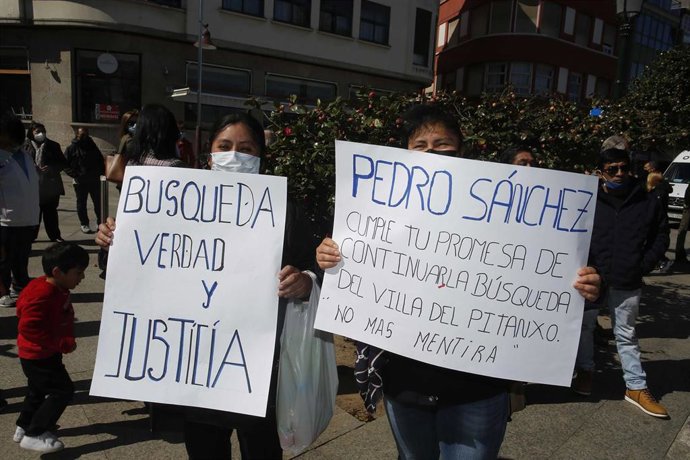 BUSQUEDA
VERDAD
y
JUSTICIA
PEDRO SÁNCHEZ
CUMPLE TU PROMESA DE
CONTINUAR LA BÚSQUEDA
DEL VILLA DEL PITANXO.
"NO MAS MENTIRA"